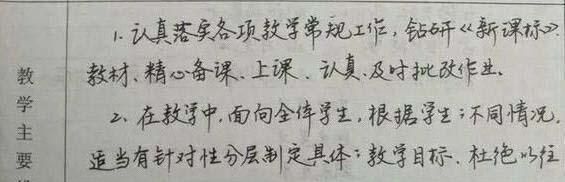 1. 认真落实各项教学常规工作，钻研《新课标》.
教材、精心备课、上课、认真及时批改作业。
2、在教学中，面向全体学生，根据学生;不同情况，
适当有针对性分层制定具体;教学目标、杜绝以往
教
学
主
要